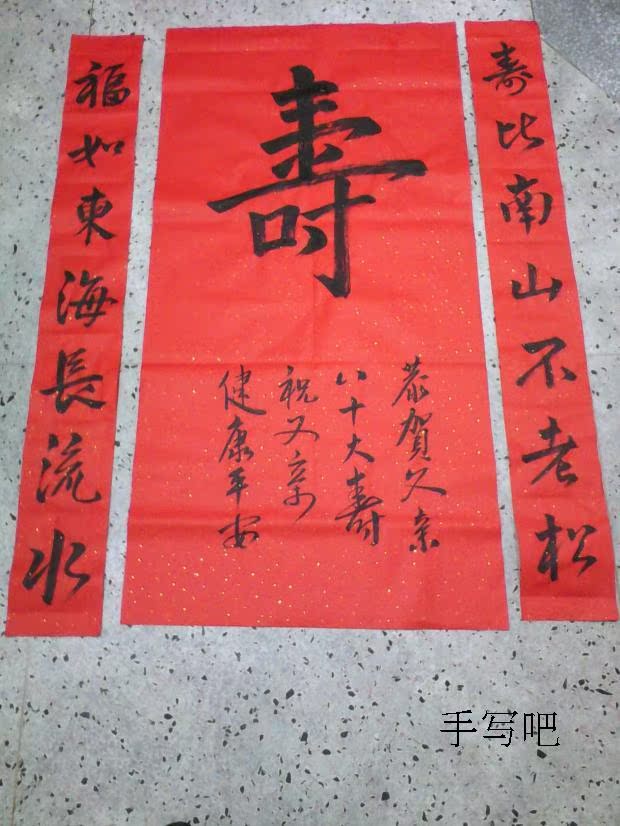 寿比南山不老松
壽
恭賀父亲
八十大壽
祝父亲
健康平安
福如東海長流水
手写吧